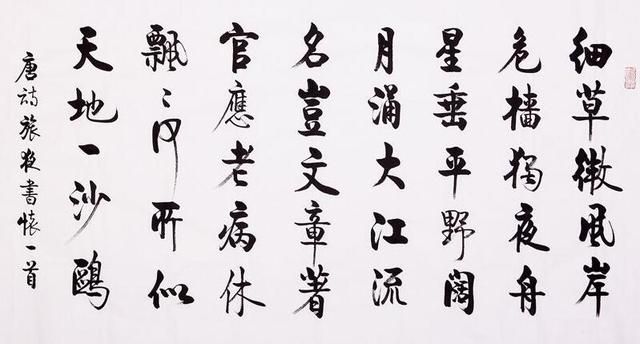 細草微風岸
危檣獨夜舟
星垂平野闊
月涌大江流
名豈文章著
官應老病休
飄飄何所似
天地一沙鷗
唐詩旅夜書懷一首